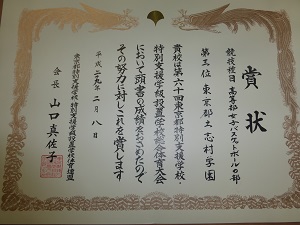 賞状
競技種目 高等部女子バスケットボールの部
第三位 東京都立志村学園
貴校は第六十四回東京都特別支援学校・
特別支援学級設置学校総合体育大会
において頭書の成績をおさめたので
その努力に対しこれを賞します
平成二九年二月八日
東京都特別支援学校・特別支援学級設置学校体育連盟
会長 山口真佐子